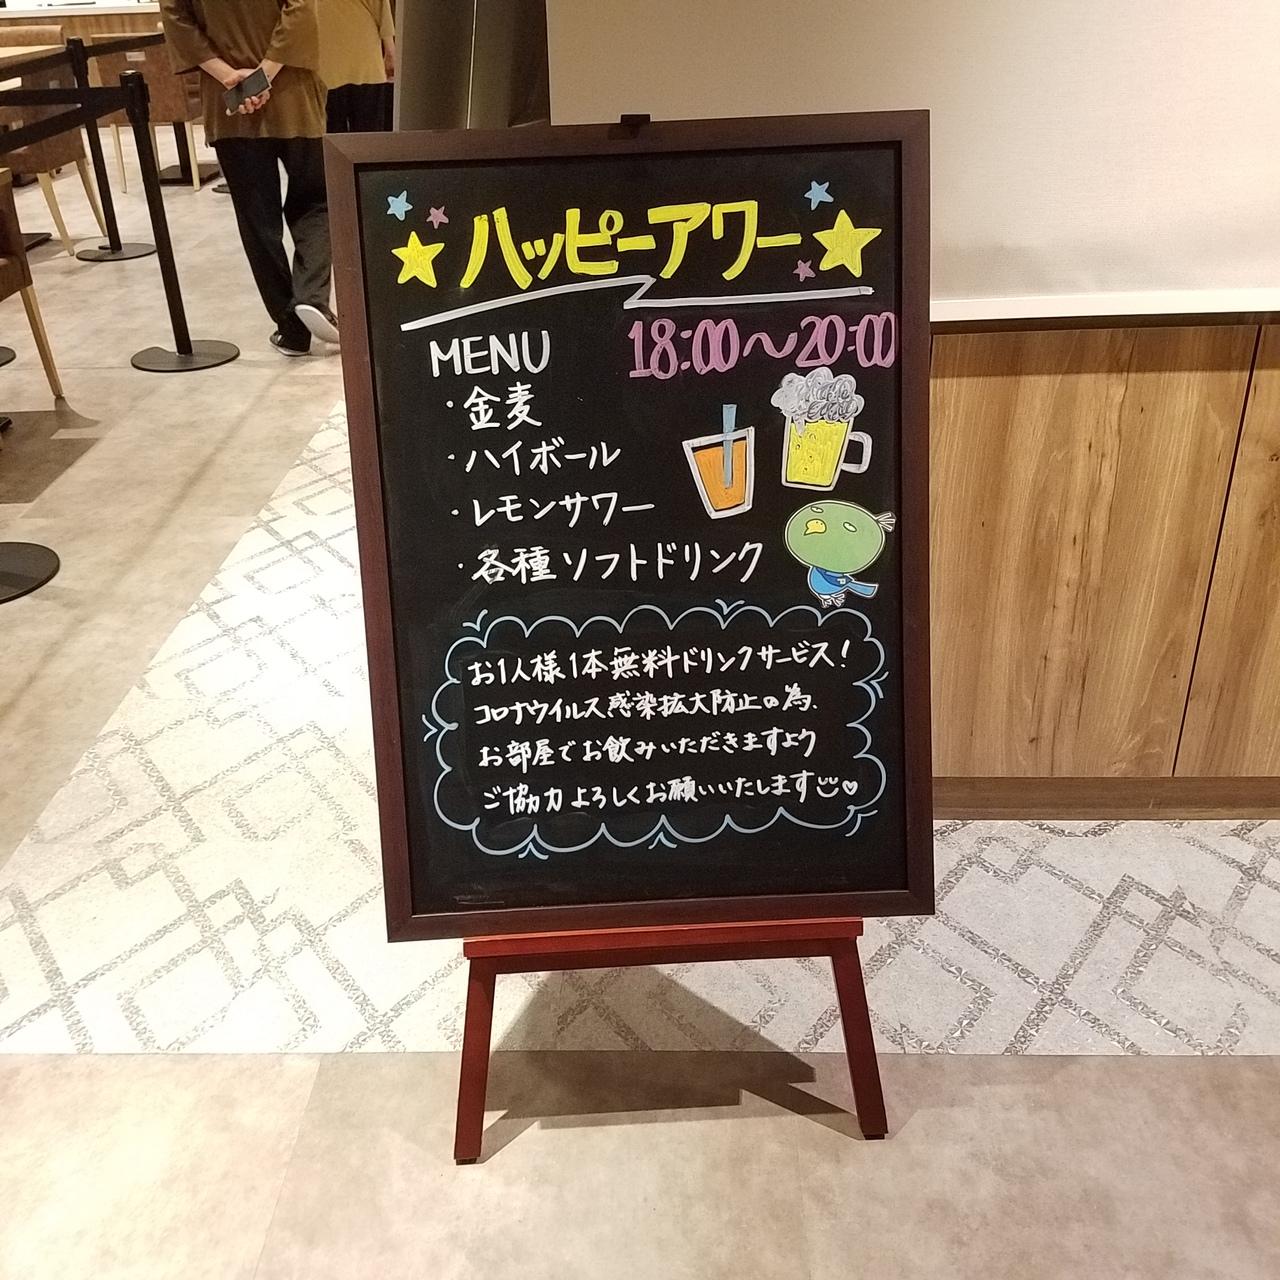 ハッピーアワー
MENU 18:00～20:00
・金麦
・ハイボール
・レモンサワー
・各種ソフトドリンク
お1人様1本無料ドリンクサービス!
コロナウイルス感染拡大防止の為、
お部屋でお飲みいただきますよう
ご協力よろしくお願いいたします